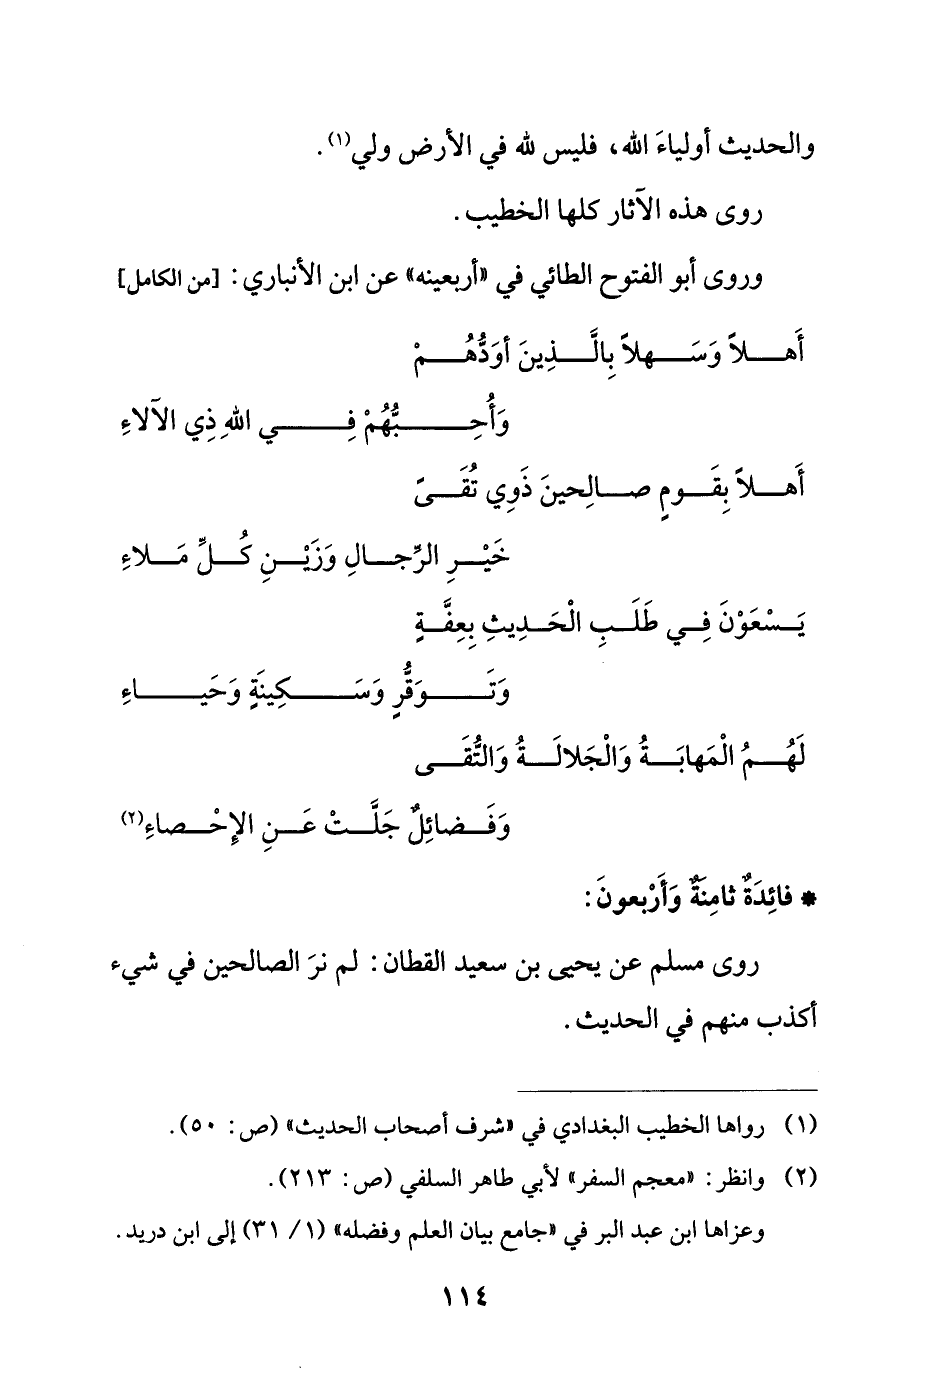 والحديث أولياءَ الله، فليس لله في الأرض ولي(١).
روى هذه الآثار كلها الخطيب.
وروى أبو الفتوح الطائي في «أربعينه» عن ابن الأنباري: [من الكامل]
أَهلاً وَسَهلاً بِالَّذِينَ أوَدُّهُمْ
وَأُحِبُّهُمْ فِي اللهِ ذِي الآلاءِ
أَهلاً بِقَومٍ صالِحينَ ذَوِي تُقَىً
خَيْرِ الرِّجالِ وَزَيْنِ كُلِّ مَلاءِ
يَسْعَوْنَ فِي طَلَبِ الْحَدِيثِ بِعِفَّةٍ
وَتَوَقُّرٍ وَسَكِينَةٍ وَحَياءِ
لَهُمُ الْمَهابَةُ وَالْجَلالَةُ وَالتُّقَى
وَفَضائِلٌ جَلَّتْ عَنِ الإِحْصاءِ(٢)
* فائِدَةٌ ثامِنَةٌ وَأَرْبعونَ:
روى مسلم عن يحيى بن سعيد القطان: لم نرَ الصالحين في شيء
أكذب منهم في الحديث.
(١) رواها الخطيب البغدادي في «شرف أصحاب الحديث» (ص: ٥٠).
(٢) وانظر: «معجم السفر» لأبي طاهر السلفي (ص: ٢١٣).
وعزاها ابن عبد البر في «جامع بيان العلم وفضله» (١/ ٣١) إلى ابن دريد.
١١٤